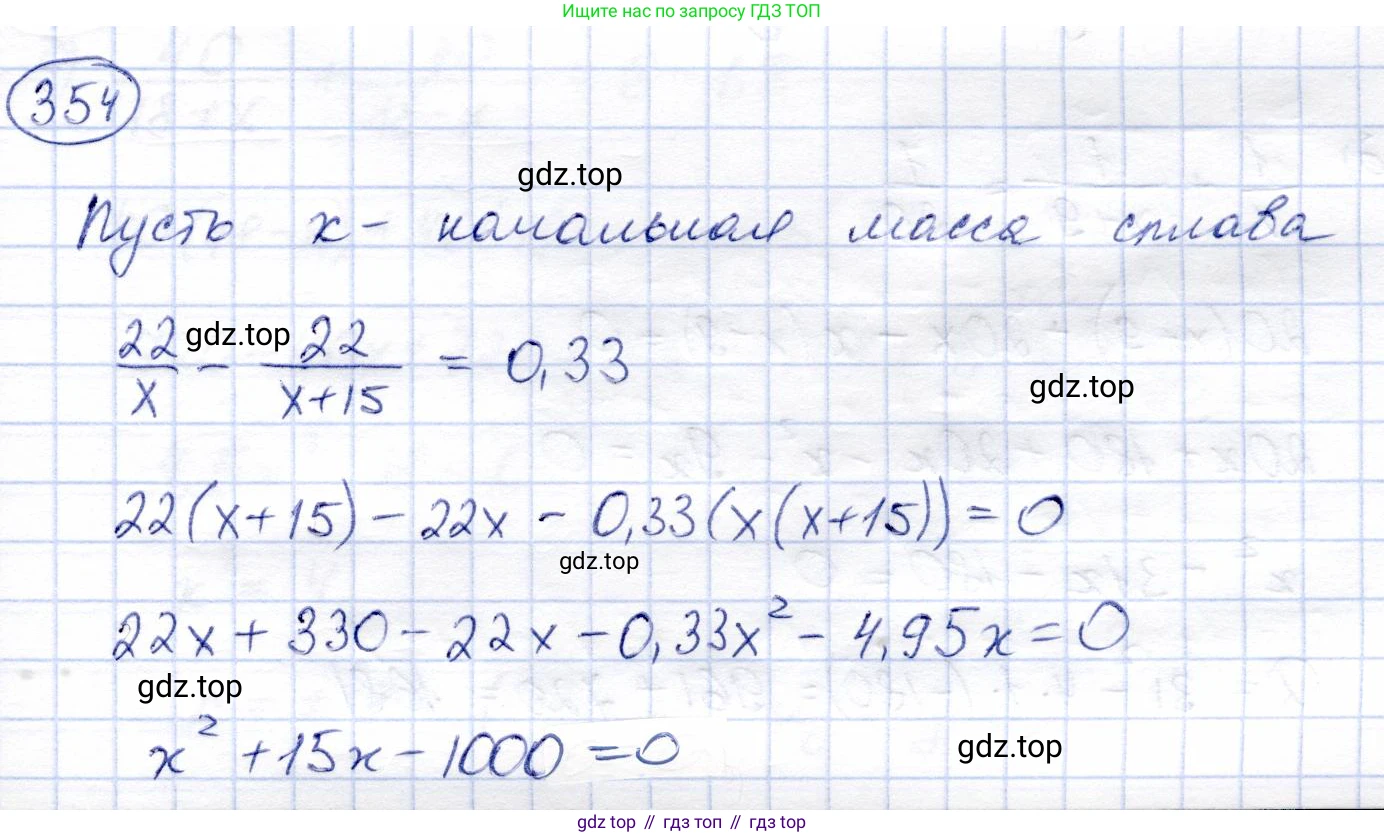 Ищите нас по запросу ГДЗ ТОП
354
gdz.top
Пусть х - начальная масса сплава
22/x - 22/(x+15) = 0,33
gdz.top
gdz.top
22(x+15) - 22x - 0,33(x(x+15)) = 0
gdz.top
22x + 330 - 22x - 0,33x² - 4,95x = 0
gdz.top
x² + 15x - 1000 = 0
gdz.top
gdz top // гдз топ // гдз top